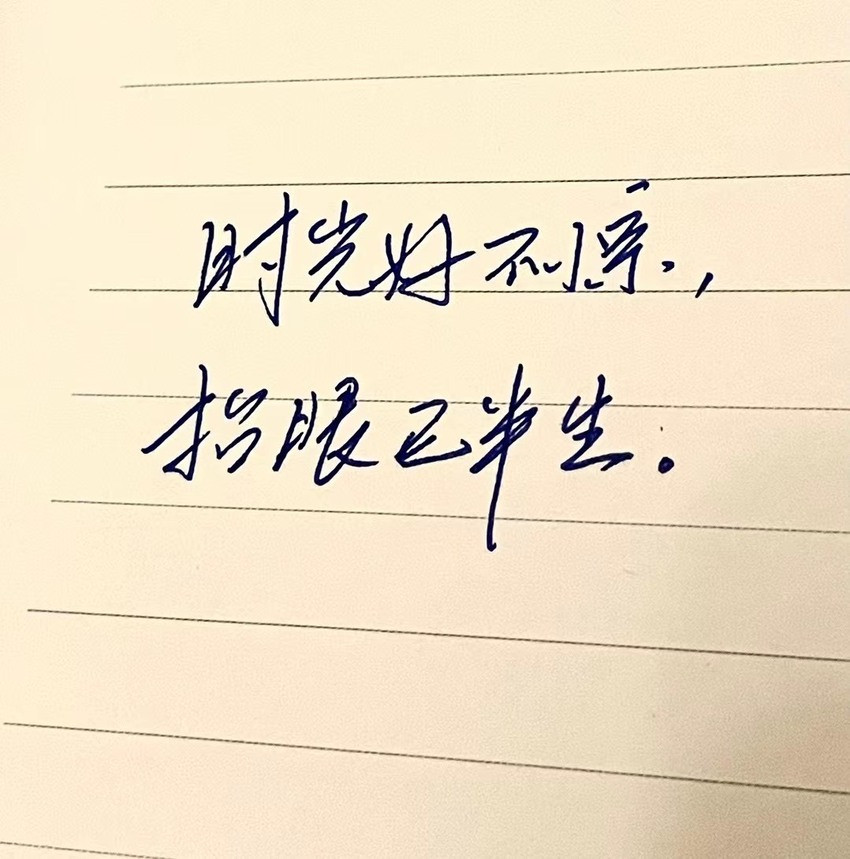 时光好不停，
抬眼已半生.